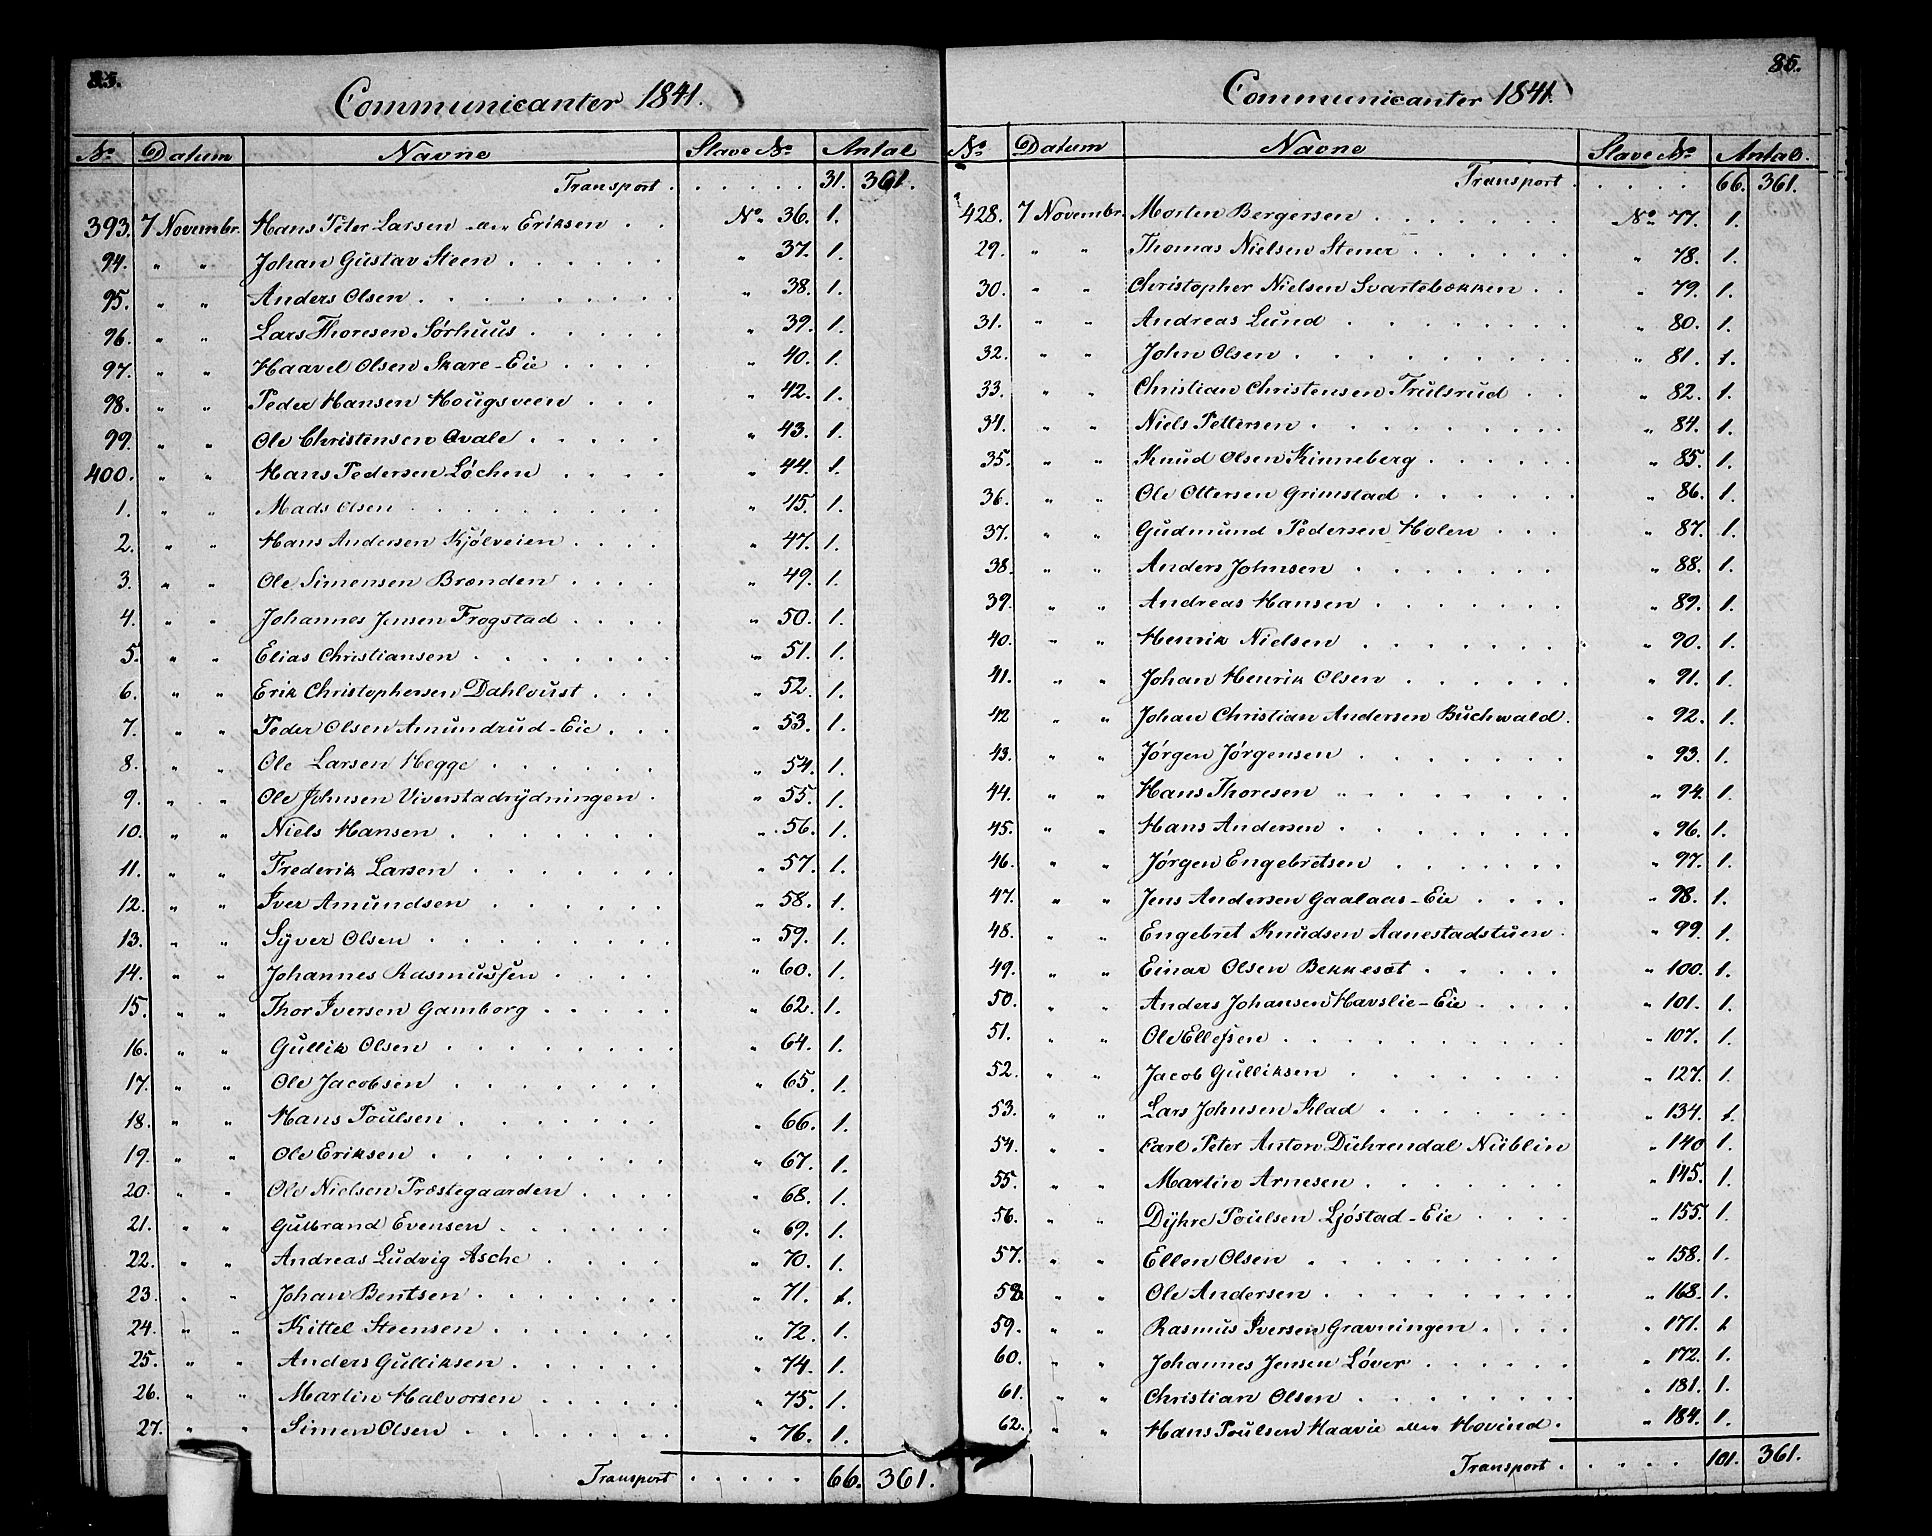 85.
Communicanter 1841.
No. Datum Navne Slave No. Antal
Transport . . . . . . 31. 361.
393. 7 Novembr. Hans Peter Larsen eller Eriksen . . No. 36. 1.
94. " " Johan Gustav Steen . . . . . . " 37. 1.
95. " " Anders Olsen . . . . . . . . " 38. 1.
96. " " Lars Thoresen Sørhuus . . . . . " 39. 1.
97. " " Haavel Olsen Skare-Eie . . . . " 40. 1.
98. " " Peder Hansen Hougsveen . . . " 42. 1.
99. " " Ole Christensen Qvale . . . . . " 43. 1.
400. " " Hans Pedersen Løchen . . . . " 44. 1.
1. " " Mads Olsen . . . . . . . . " 45. 1.
2. " " Hans Andersen Kjølveien . . . . " 47. 1.
3. " " Ole Simensen Brænden . . . . " 49. 1.
4. " " Johannes Jensen Frogstad . . . . " 50. 1.
5. " " Elias Christiansen . . . . . . . " 51. 1.
6. " " Erik Christophersen Dahlqvist . . . " 52. 1.
7. " " Peder Olsen Amundrud-Eie . . . " 53. 1.
8. " " Ole Larsen Hegge . . . . . . " 54. 1.
9. " " Ole Johnsen Viverstadrydningen . " 55. 1.
10. " " Niels Hansen . . . . . . . " 56. 1.
11. " " Frederik Larsen . . . . . . . " 57. 1.
12. " " Iver Amundsen . . . . . . " 58. 1.
13. " " Syver Olsen . . . . . . . . " 59. 1.
14. " " Johannes Rasmussen . . . . " 60. 1.
15. " " Thor Iversen Gamborg . . . . . " 62. 1.
16. " " Gullik Olsen . . . . . . . . " 64. 1.
17. " " Ole Jacobsen . . . . . . . " 65. 1.
18. " " Hans Poulsen . . . . . . . " 66. 1.
19. " " Ole Eriksen . . . . . . . . " 67. 1.
20. " " Ole Nielsen Præstegaarden . . . . " 68. 1.
21. " " Gulbrand Evensen . . . . . . " 69. 1.
22. " " Andreas Ludvig Asche . . . . " 70. 1.
23. " " Johan Bentsen . . . . . . . " 71. 1.
24. " " Kittel Steensen . . . . . . . " 72. 1.
25. " " Anders Gulliksen . . . . . . " 74. 1.
26. " " Martin Halvorsen . . . . . . " 75. 1.
27. " " Simen Olsen . . . . . . . " 76. 1.
Transport . . . . . 66. 361.
85.
Communicanter 1841.
No. Datum Navne Slave No. Antal.
Transport . . . . . 66. 361.
428. 7 Novembr. Morten Bergersen . . . . . . No. 77. 1.
29. " " Thomas Nielsen Stener . . . . . " 78. 1.
30. " " Christopher Nielsen Svartebækken . . " 79. 1.
31. " " Andreas Lund . . . . . . . " 80. 1.
32. " " John Olsen . . . . . . . . " 81. 1.
33. " " Christian Christensen Trulsrud . . " 82. 1.
34. " " Niels Pettersen . . . . . . . . " 84. 1.
35. " " Knud Olsen Kinneberg . . . . . " 85. 1.
36. " " Ole Ottersen Grimstad . . . . . " 86. 1.
37. " " Gudmund Pedersen Holen . . . " 87. 1.
38. " " Anders Johnsen . . . . . . " 88. 1.
39. " " Andreas Hansen . . . . . . " 89. 1.
40. " " Henrik Nielsen . . . . . . . " 90. 1.
41. " " Johan Henrik Olsen . . . . . " 91. 1.
42 " " Johan Christian Andersen Buchwald. " 92. 1.
43. " " Jørgen Jørgensen . . . . . . " 93. 1.
44. " " Hans Thoresen . . . . . . . " 94. 1.
45. " " Hans Andersen . . . . . . . " 96. 1.
46. " " Jørgen Engebretsen . . . . . . " 97. 1.
47. " " Jens Andersen Gaalaas-Eie . . . . " 98. 1.
48. " " Engebret Knudsen Aanestadstuen . " 99. 1.
49. " " Einar Olsen Bekkesæt . . . . . " 100. 1.
50. " " Anders Johansen Havslie-Eie . . . . " 101. 1.
51. " " Ole Ellefsen . . . . . . . . . " 107. 1.
52. " " Jacob Gulliksen . . . . . . . " 127. 1.
53. " " Lars Johnsen Klad . . . . . . " 134. 1.
54. " " Carl Peter Anton Dührendal Nüblin " 140 1.
55. " " Martin Arnesen . . . . . . . " 145. 1.
56. " " Dyhre Poulsen Ljøstad-Eie . . . . " 155. 1.
57. " " Ellen Olsen . . . . . . . . " 158. 1.
58. " " Ole Andersen . . . . . . . . " 168. 1.
59. " " Rasmus Iversen Gravningen . . . . " 171. 1.
60. " " Johannes Jensen Løver . . . . . " 172. 1.
61. " " Christian Olsen . . . . . . . " 181. 1.
62. " " Hans Poulsen Haavie eller Hovind . " 184. 1.
Transport . . . . . 101. 361.